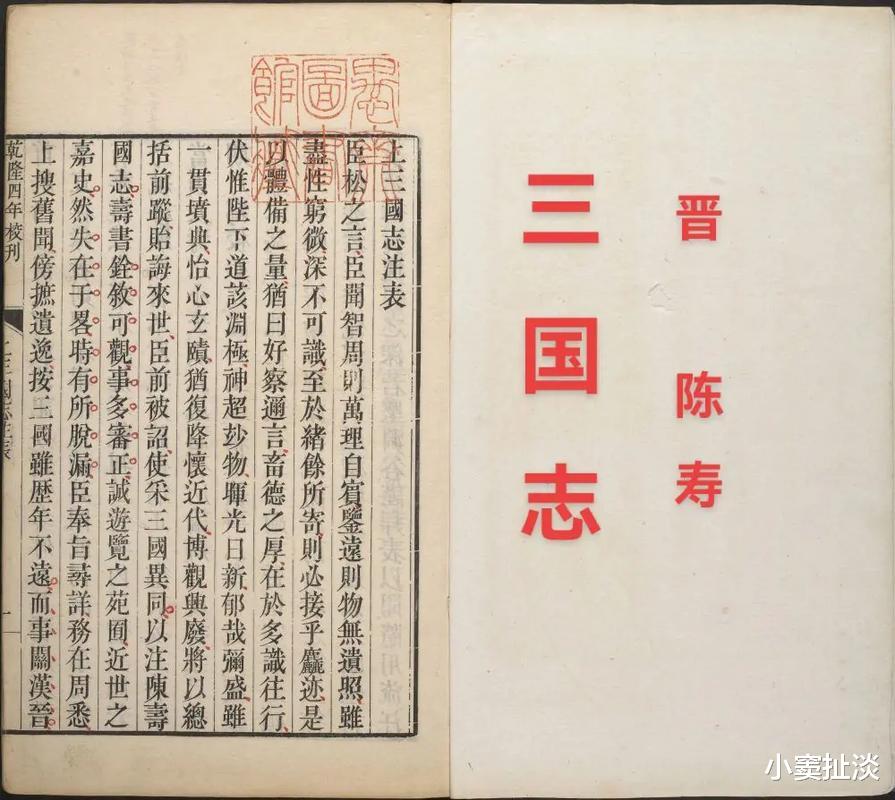 晋 陈寿
三国志
上三國志注表
臣松之言臣聞智周則萬理自賓鑒遠則物無遺照雖
盡性窮微深不可識至於緒餘所寄則必接乎麤迹是
以體備之量猶曰好察邇言畜德之厚在於多識往行
伏惟陛下道該淵極神超玅物暉光日新郁哉彌盛雖
一貫墳典怡心玄賾猶復降懷近代博觀興廢將以總
括前蹤貽誨來世臣前被詔使采三國異同以注陳壽
國志壽書銓敘可觀事多審正誠遊覽之苑囿近世之
嘉史然失在于畧時有所脫漏臣奉旨尋詳務在周悉
上搜舊聞傍摭遺逸按三國雖歷年不遠而事關漢晉
乾隆四年校刊
小窦扯淡